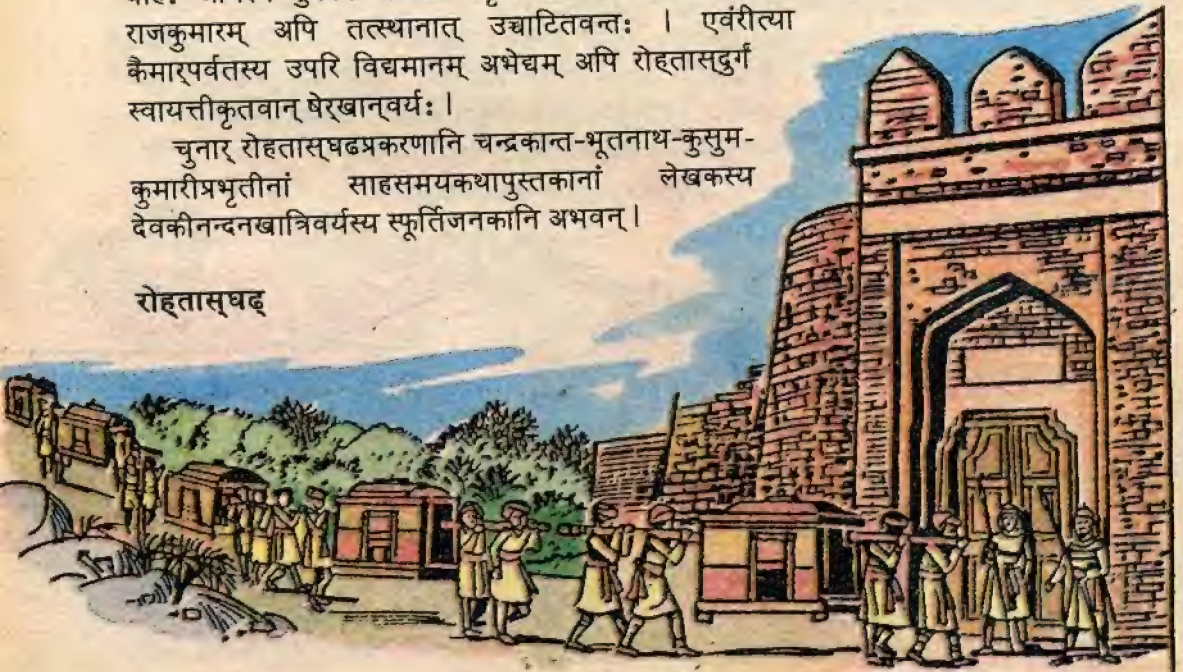 राजकुमारम् अपि तत्स्थानात् उच्चाटितवन्तः । एवंरीत्या
कैमार्‌पर्वतस्य उपरि विद्यमानम् अभेद्यम् अपि रोह्तास्‌दुर्गं
स्वायत्तीकृतवान् षेर्‌खान्‌वर्यः ।
चुनार् रोहतास्‌घढप्रकरणानि चन्द्रकान्त-भूतनाथ-कुसुम-
कुमारीप्रभृतीनां साहसमयकथापुस्तकानां लेखकस्य
देवकीनन्दनखात्रिवर्यस्य स्फूर्तिजनकानि अभवन् ।
रोह्तास्‌घढ्